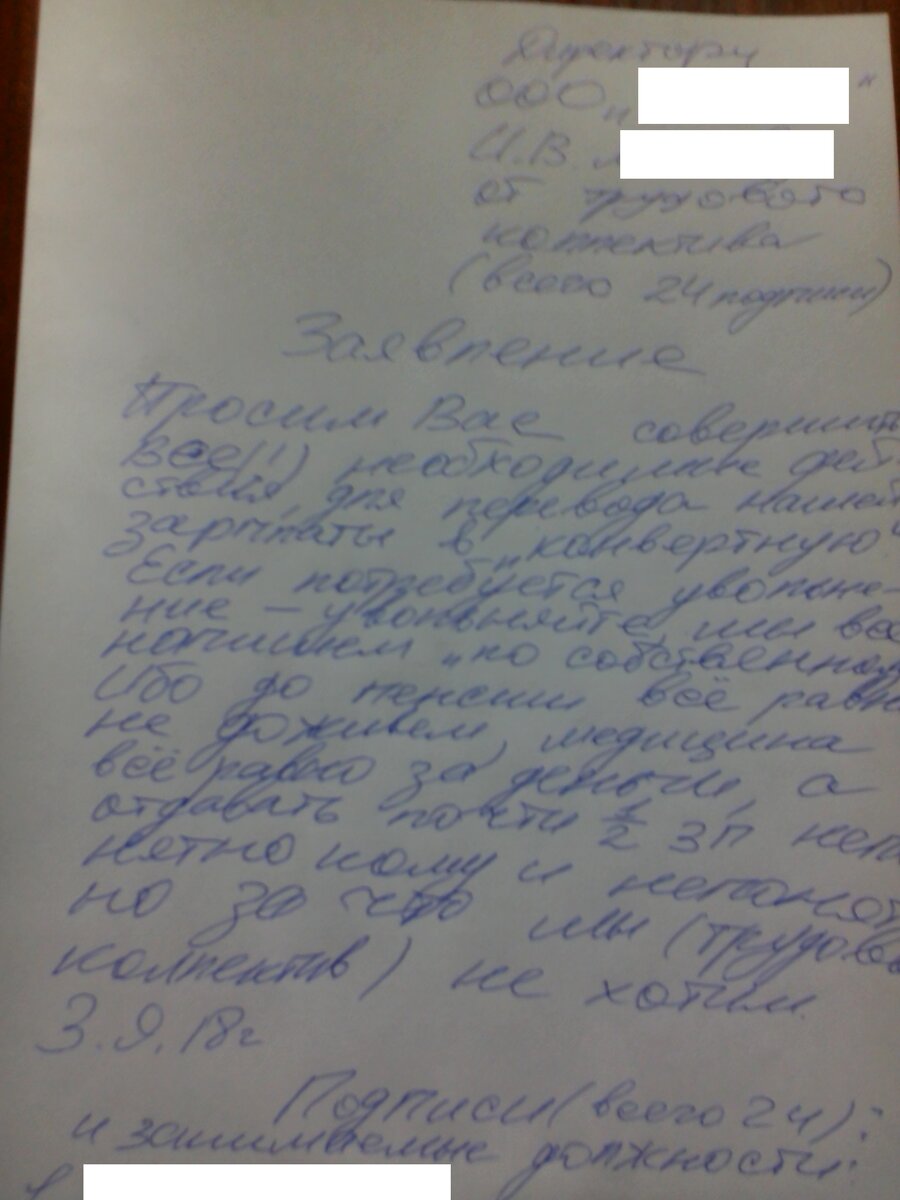 Директору
ООО „ "
И.В.
от трудового
коллектива
(всего 24 подписи)
Заявление
Просим Вас совершить
все(!!) необходимые дей-
ствия, для перевода нашей
зарплаты в „конвертную"
Если потребуется увольне-
ние – увольняйте, мы все
напишем „по собственному
Ибо до пенсии всё равно
не доживём, медицина
всё равно за деньги, а
отдавать почти 1/2 ЗП непо
нятно кому и непонят
но за что мы (трудовой
коллектив) не хотим.
3.9.18г
Подписи (всего 24):
и занимаемые должности: